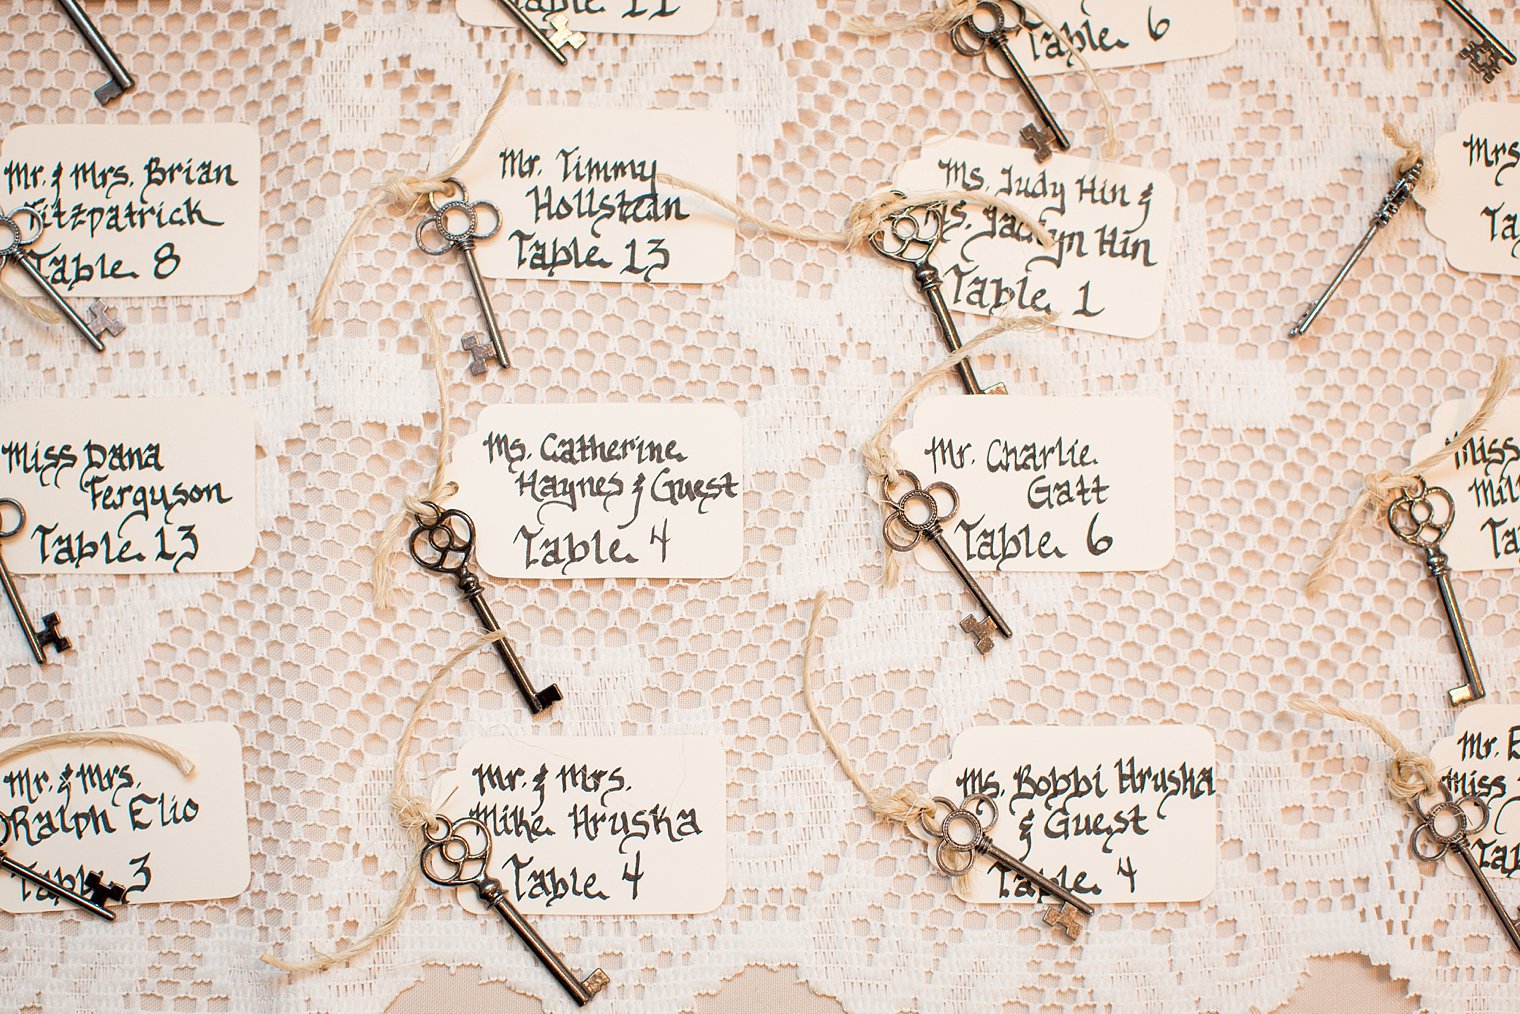 Table 11
Table 6
Mr. & Mrs. Brian
Fitzpatrick
Table 8
Mr. Timmy
Hollstean
Table 13
Ms. Judy Hin &
Ms. Jaclyn Hin
Table 1
Mrs
Miss Dana
Ferguson
Table 13
Ms. Catherine
Haynes & Guest
Table 4
Mr. Charlie
Gatt
Table 6
Miss
Mr. & Mrs.
Ralph Elio
Table 3
Mr. & Mrs.
Mike Hruska
Table 4
Ms. Bobbi Hruska
& Guest
Table 4
Mr.
Miss